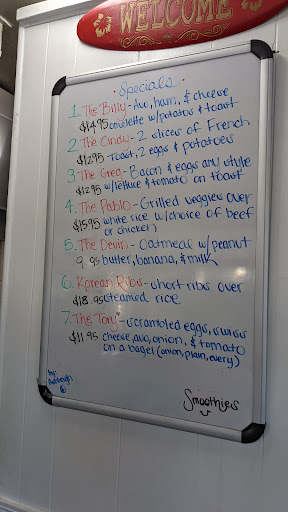 WELCOME
Specials
1. The Billy - Avo, ham, & cheese
$14.95 omelette w/potatos & toast
2. The Cindy - 2 slices of French
$12.95 Toast, 2 eggs & potatoes
3. The Greg - Bacon & eggs any style
$12.95 w/lettuce & tomato on toast
4. The Pablo - Grilled veggies over
$15.95 white rice w/choice of beef
or chicken)
5. The Devin - Oatmeal w/peanut
9.95 butter, banana, & milk
6. Korean Ribs - short ribs over
$18.95 steamed rice
7. The Tory - scrambled eggs, swiss
$11.95 cheese, avo, onion, & tomato
on a bagel (onion, plain, every)
by:
Smoothies